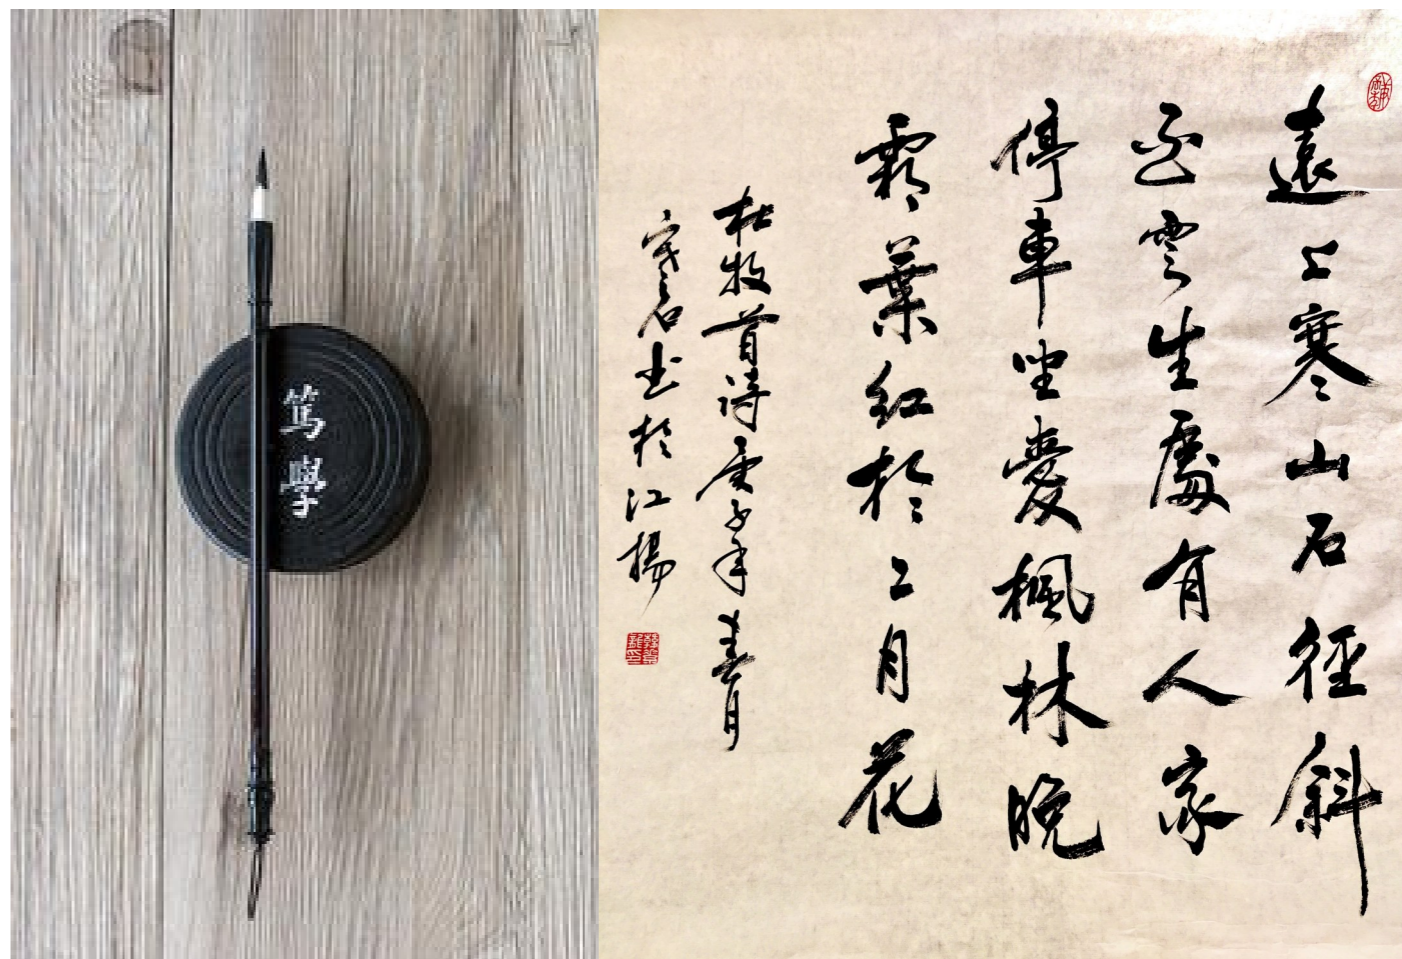 篤學
遠上寒山石徑斜
白雲生處有人家
停車坐愛楓林晚
霜葉紅於二月花
杜牧首詩庚子年春月
书於江揚